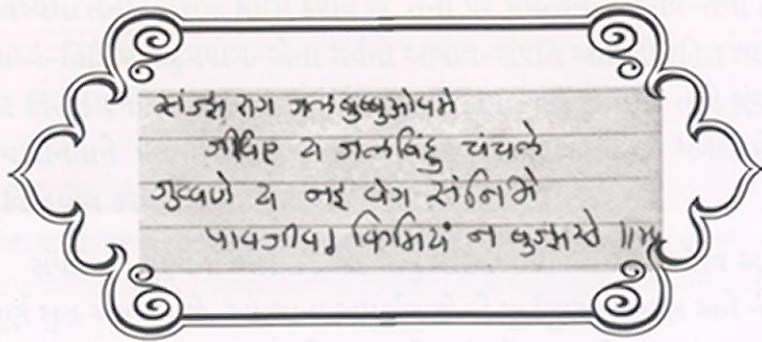 संज्झ राग जल बुब्बुओपमे
जीविए य जलबिंदु चंचले
जुव्वणे य नइ वेग संनिभे
पावजीव! किमियं न बुज्झसे ॥